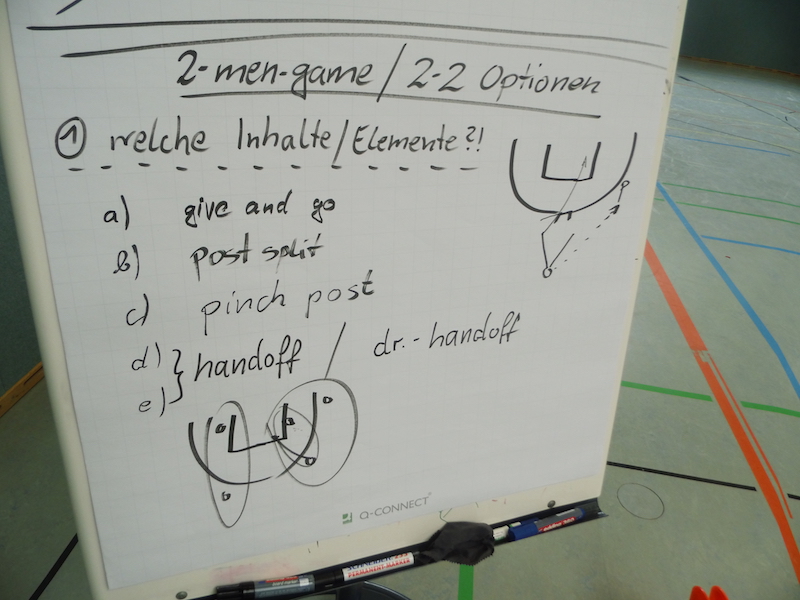 2-men-game / 2-2 Optionen
① welche Inhalte/Elemente?!
a) give and go
b) post split
c) pinch post
d) } handoff / dr.-handoff
e)
Q-CONNECT
PERMANENT MARKER